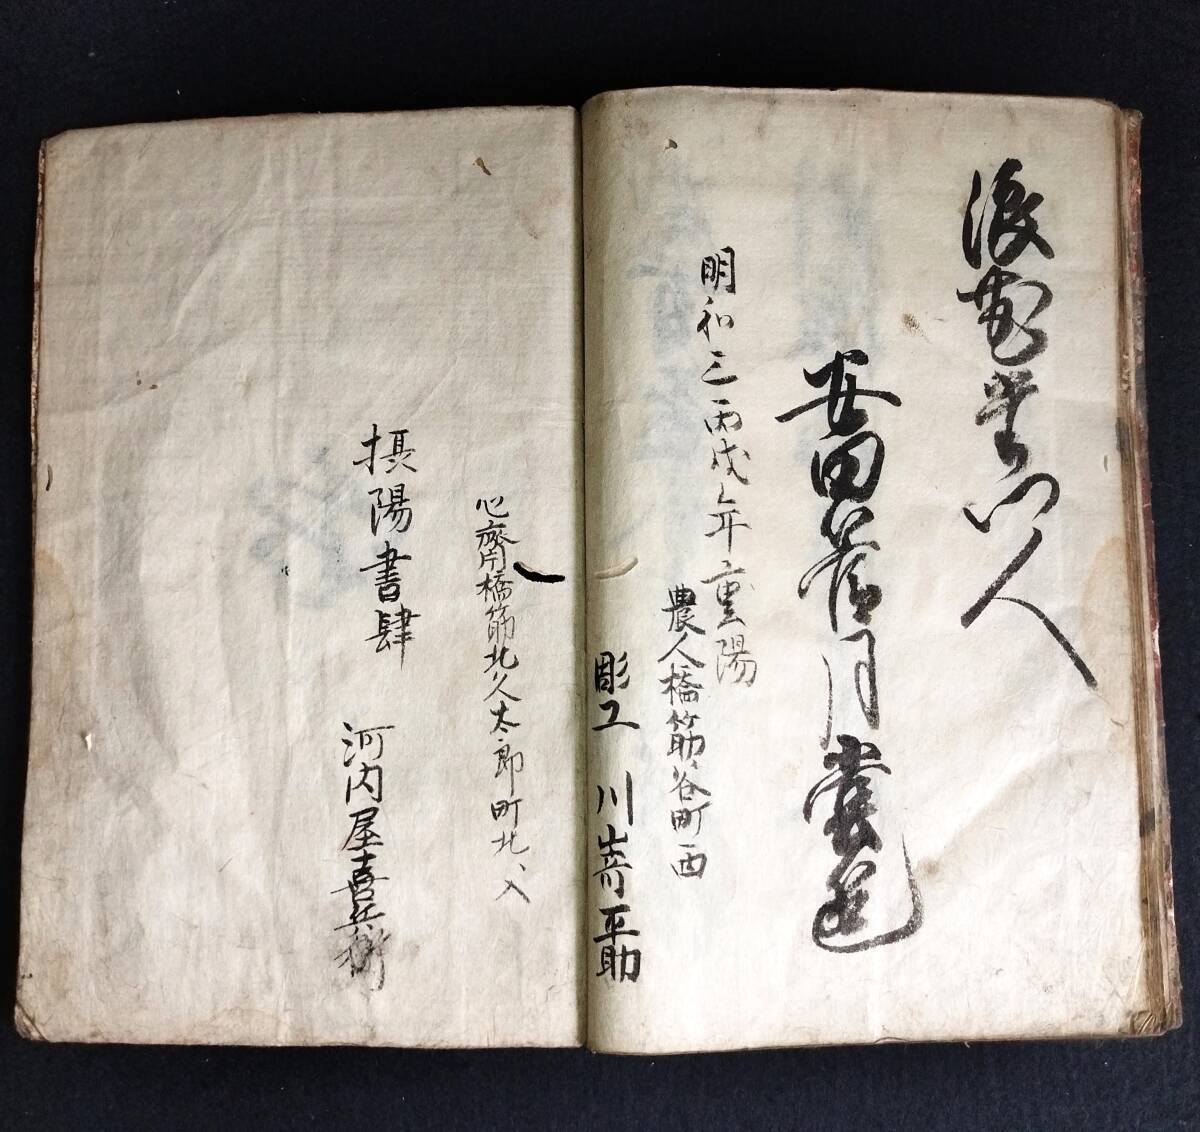 浪花堂門人
安田若月堂
明和三丙戌年重陽
農人橋筋谷町西
彫工 川嵜平助
心齋橋筋北久太郎町北ヘ入
摂陽書肆 河内屋喜兵衛